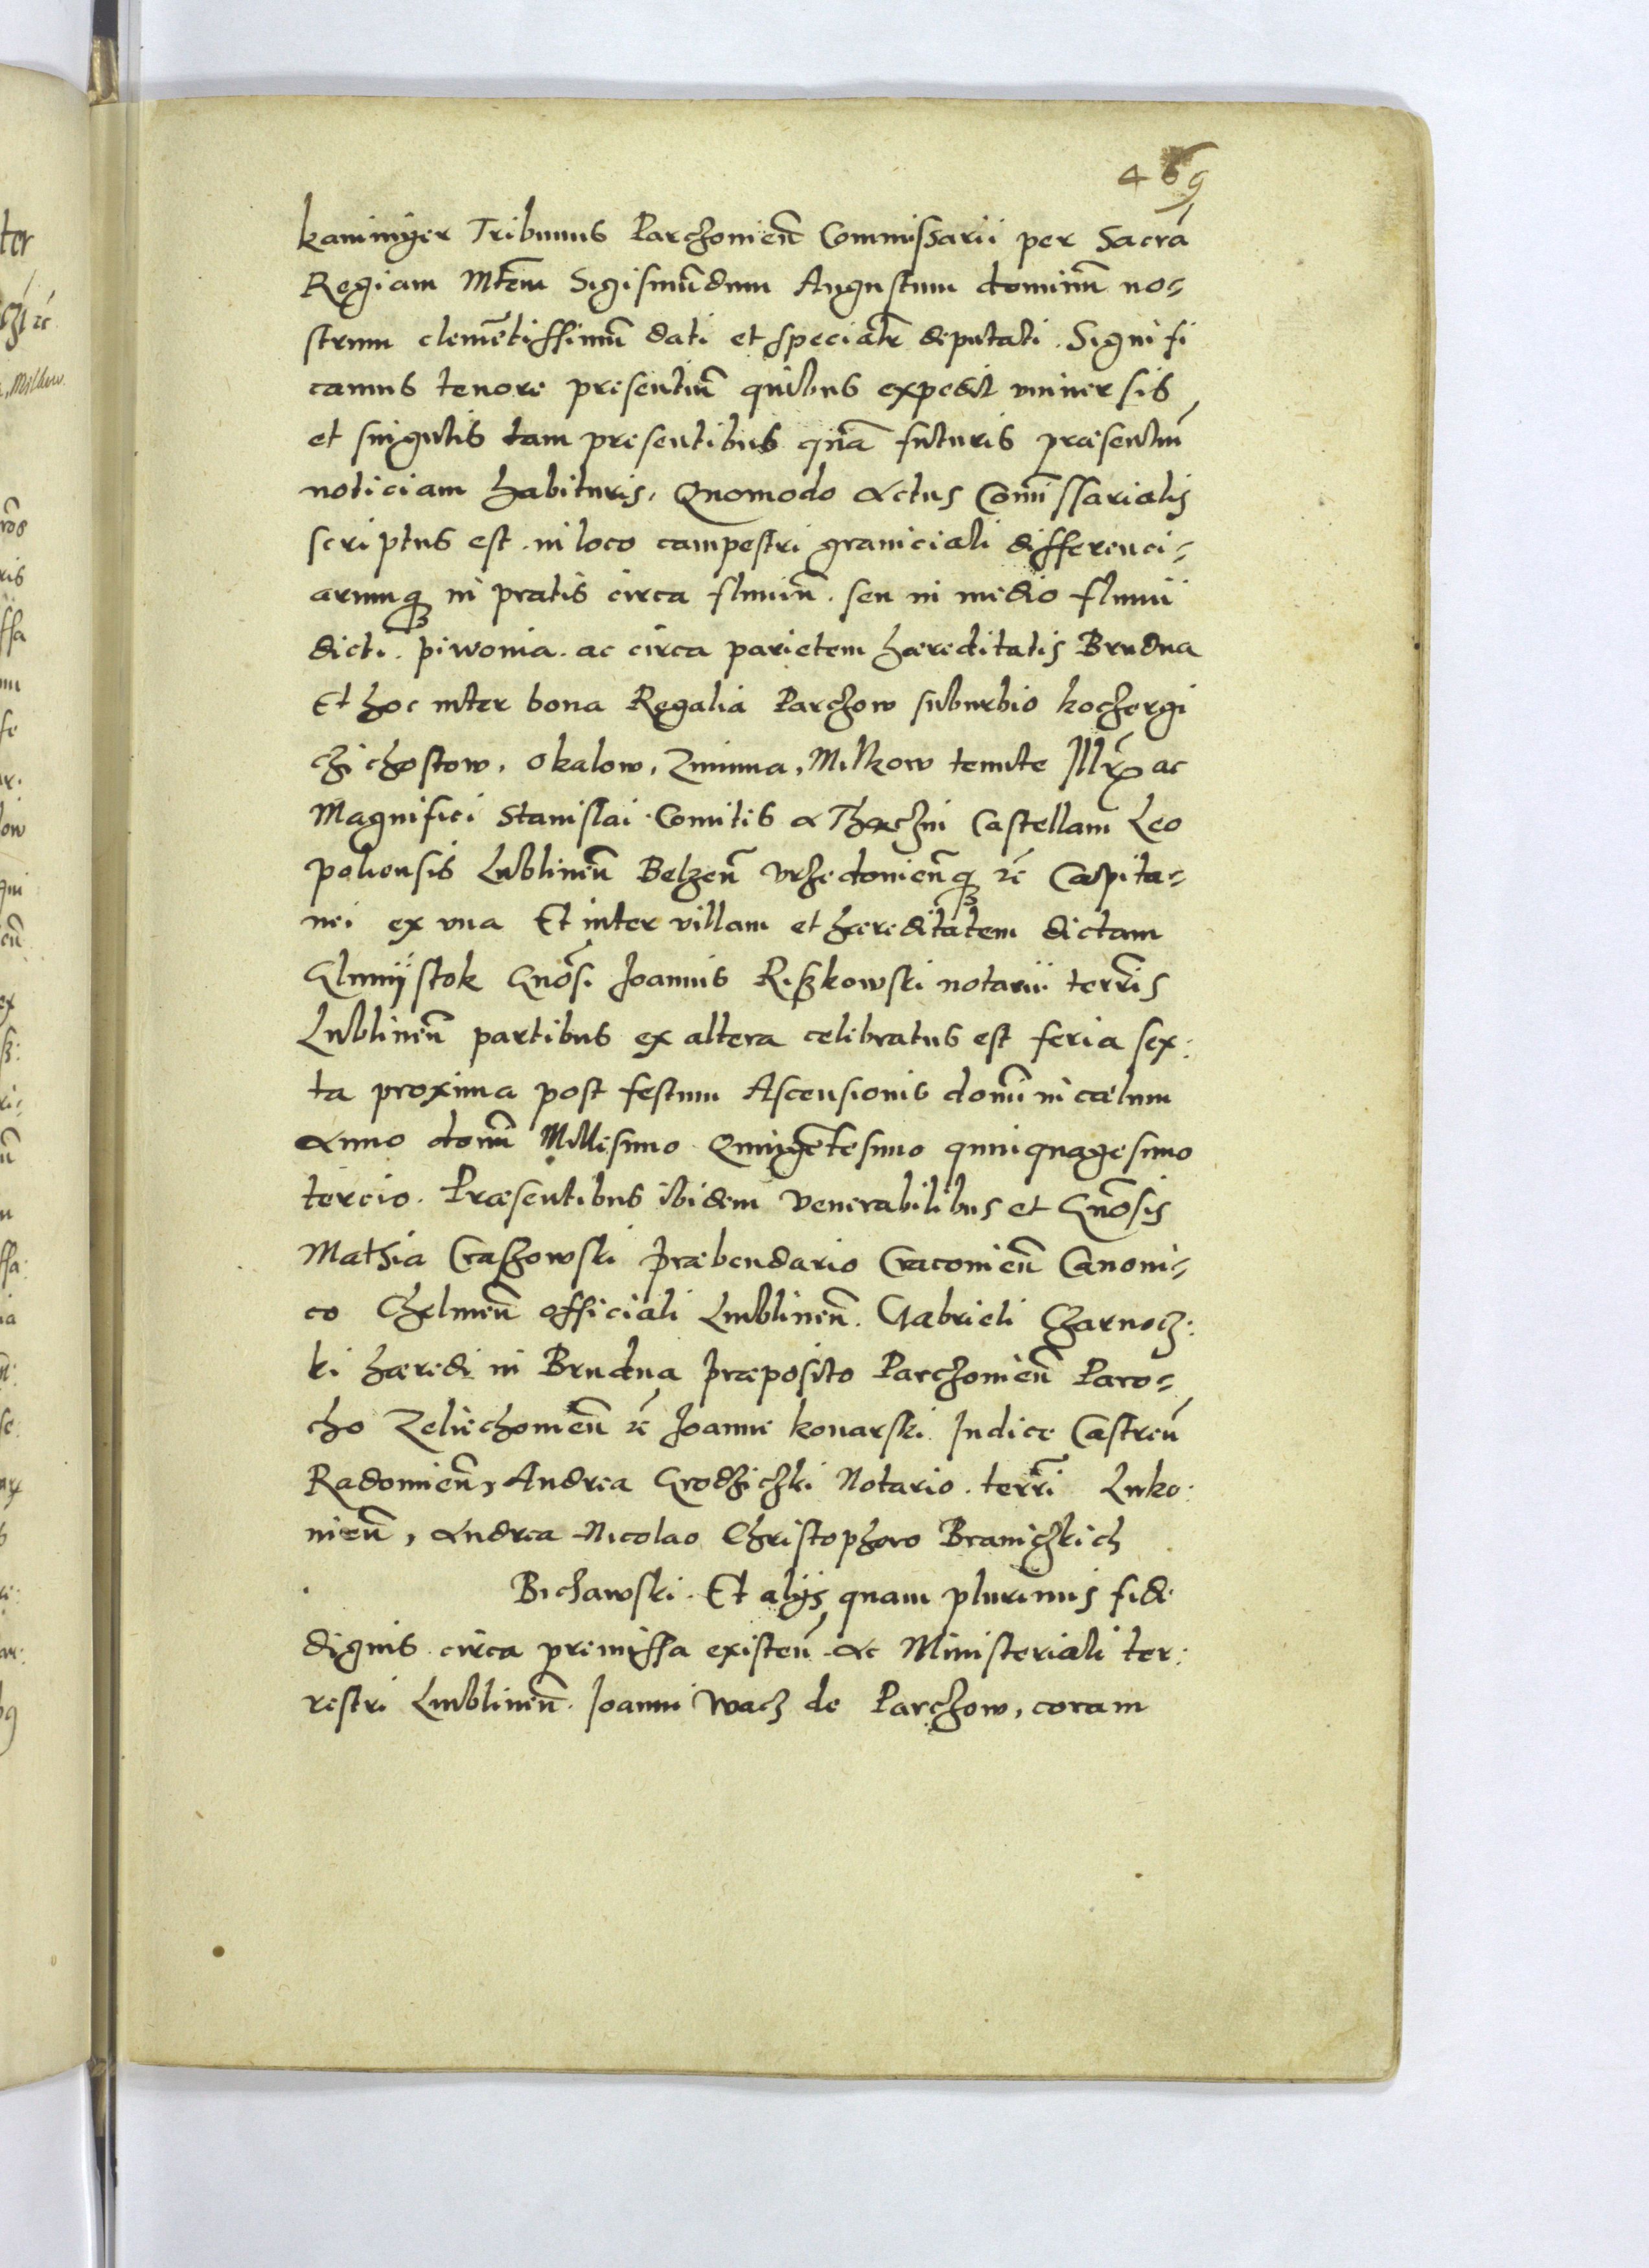 469
kaminyer Tribunus Parczoniēn Commissarii per Sacrā
Regiam Mtēm Sigismūdum Augustum dominū no-
strum clemētissimū dati et speciatr̄ deputati. Signifi
camus tenore presentiū quibus expedit vniuersis
et singulis tam presentibus quā futuris præsentiū
noticiam habituris, Quomodo Actus Comīssarialis
scriptus est. in loco campestri graniciali differenci-
arumq3 in pratis circa fluuiū. seu in medio fluuii
dicti. piwonia. ac circa parietem hæreditatis Brudna
Et hoc inter bona Regalia Parczow suburbio koczergi
chichostow, okalow, Zminna, Milkow tenute Illr̄ ac
Magnifici Stanislai Comitis a Thaczin Castellani Leo
poliensis Lublinēn Belzēn Vrzedoniēnq3 rē Capita-
nei ex vna Et inter villam et hæreditatem dictam
Glinnÿ stok Gnōsi Joannis Rißkowski notarii terrīs
Lublinēn partibus ex altera celibratus est feria sex:
ta proxima post festum Ascensionis domī in cælum
Anno domī Millesimo Quingētesimo quinquagesimo
tercio. Præsentibus ibidem venerabilibus et Gnōsis
Mathia Craszowski præbendario Cracouiēn Canoni-
co Chelmēn officiali Lublinēn. Gabrieli Czarnocz:
ki hæredi in Brudna præposito Parczoniēn Paro-
cho Zeliechouiēn rē Joanne konarski Judice Castrēn
Radomiēn, Andrea Grodziczki Notario. terrī Luko:
niēn, Andrea Nicolao Christophoro Braniczkich
Bichawski. Et alÿs quam plurimis fide
dignis circa premissa existēn ac Ministeriali ter:
restri Lublinēn. Joanni Wach de Parczow, coram